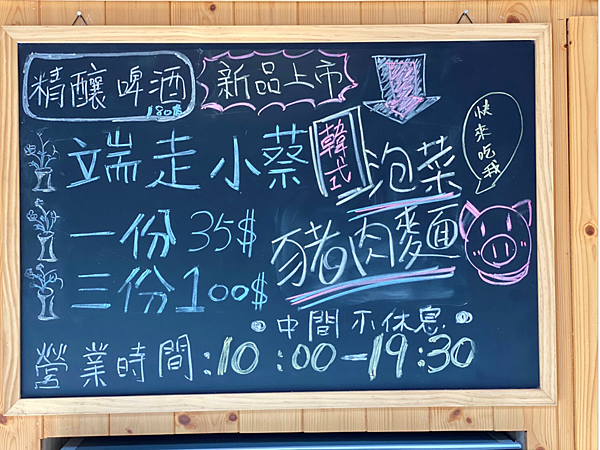 精釀啤酒
180元
新品上市
快來吃我
端走小蔡
韓式
泡菜
一份 35$
豬肉麵
三份100$
中間不休息
營業時間:10:00-19:30